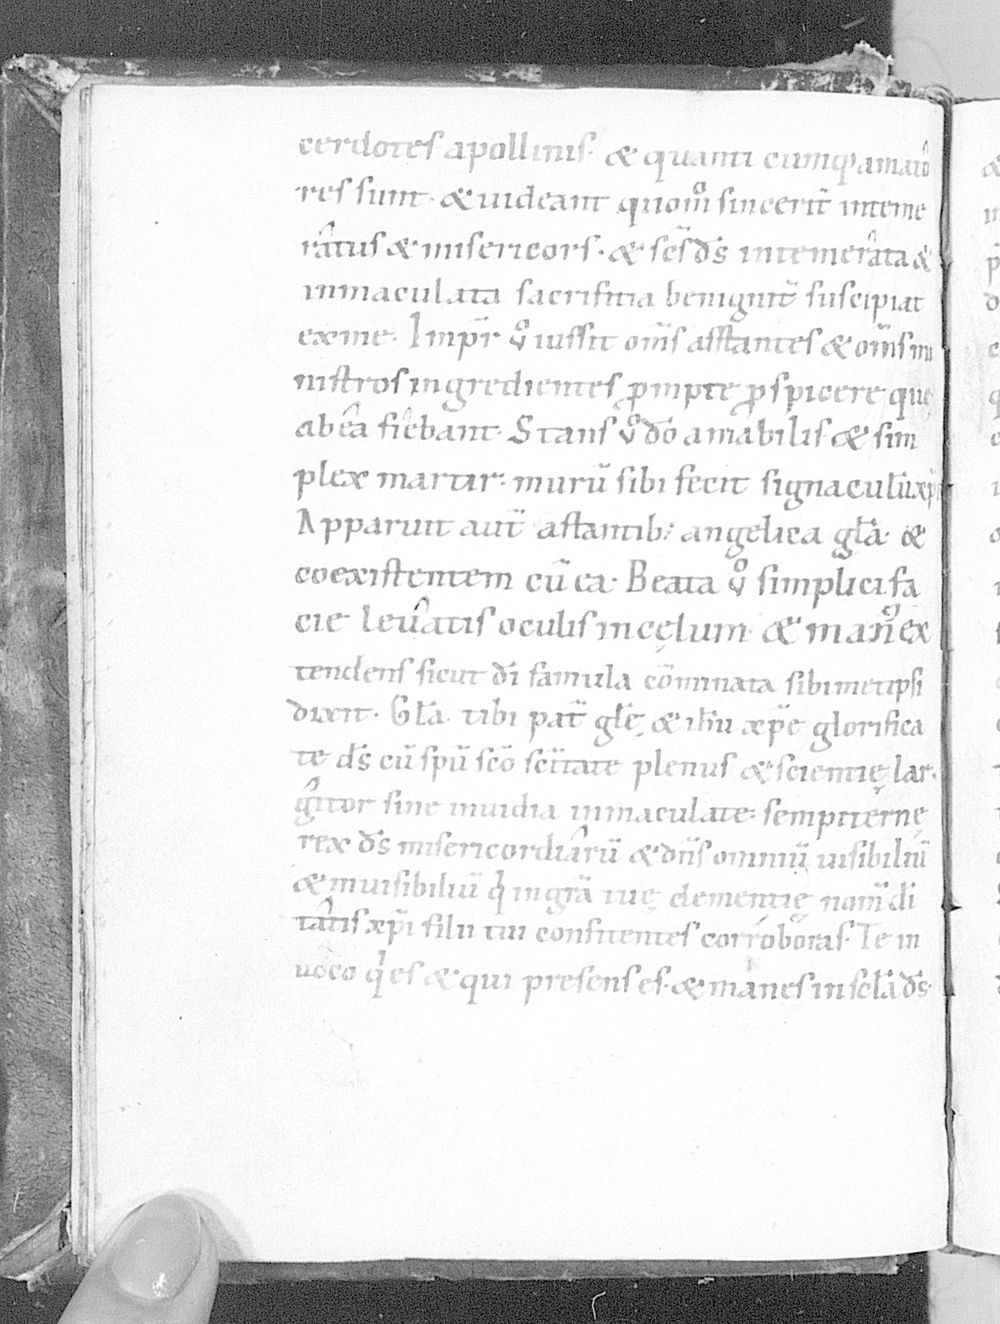 cerdotes apollinis· & quanti cumq; amato
res sunt· & uideant quom̄ sincerit̄ inteme
ratus & misericors· & sc̄s d̄s intemerata &
inmaculata sacrificia benignit̄ suscipiat
ex me· Imp̄r ỽ iussit om̄s asstantes & om̄s mi
nistros ingredientes ꝓmpte ꝓspicere quę
ab ea fiebant· Stans ỽ dō amabilis & sim
plex martir· murū sibi fecit signaculū xp̄i
Apparuit aut̄ astantib; angelica gl̄a· &
coexistentem cū ea· Beata ỽ simplici fa
cie leuatis oculis in cęlum· & man; ex
tendens sicut dī famula cōminata sibimetipsi
dixit· Gl̄a tibi pat̄ gl̄ę & ih̄u xp̄e glorifica
te d̄s cū sp̄u sc̄o sc̄itate plenus & scientię lar
gitor sine inuidia inmaculate· sempiternę
rex d̄s misericordiarū & dn̄s omniū uisibiliū
& inuisibiliū q̄ in gr̄a tuę clementię nom̄ di
tatis xp̄i filii tui confitentes corroboras· Te in
uoco q̄ es & qui presens es· & manes in scl̄a d̄s·